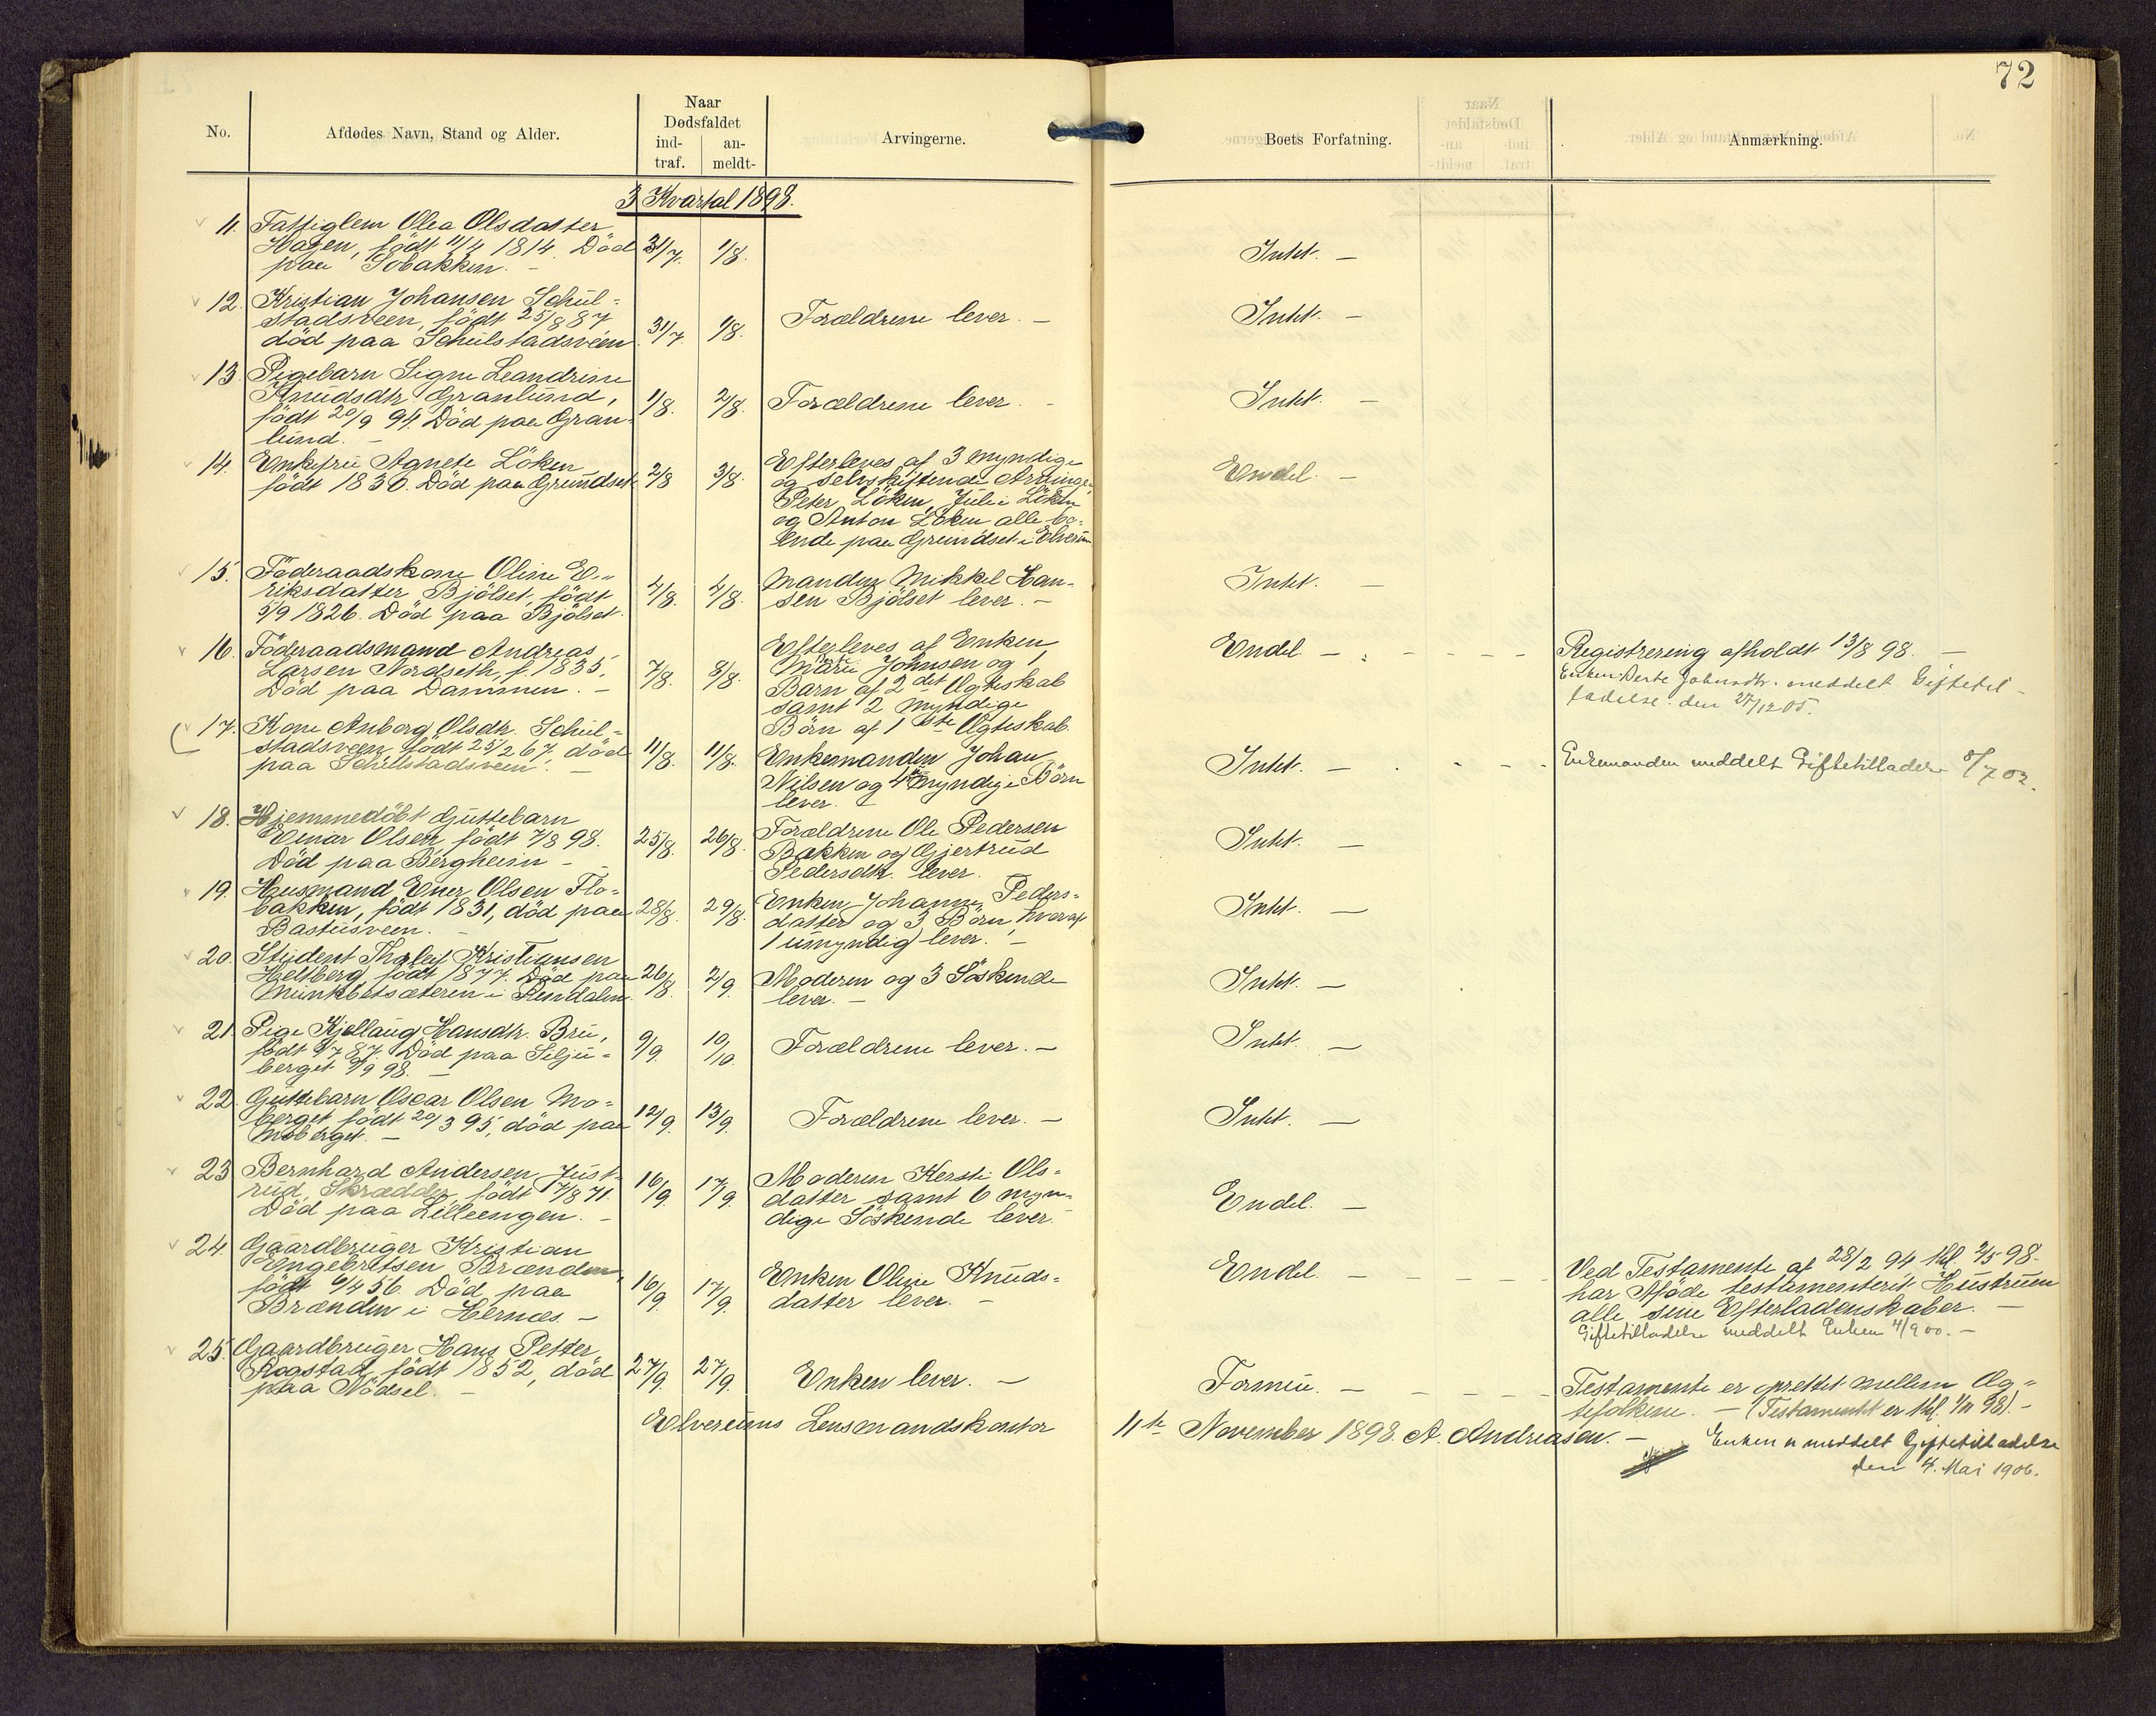 72
No.
Afdødes Navn, Stand og Alder.
Naar
Dødsfaldet
ind-
traf.
an-
meldt-
Arvingerne.
Boets Forfatning.
Anmærkning.
3 Kvartal 1898.
11. Fattiglem Olea Olsdatter
Hagen, födt 11/4 1814. Död
paa Sobakken. -
31/7. 1/8.
Intet. -
12. Kristian Johansen Schul-
stadsveen, födt 25/8 87
död paa Schulstadsveen
31/7. 1/8.
Forældrene lever. -
Intet. -
13. Pigebarn Signe Leandrine
Knudsdtr. Granlund,
födt 20/9 94. Död paa Gran-
lund. -
1/8. 2/8.
Forældrene lever. -
Intet. -
14. Enkefru Agnete Löken
födt 1836. Död paa Grundset
2/8 3/8.
Efterleves af 3 myndige
og selvskiftende Arvinge,
Peter Löken, Julie Löken
og Anton Löken alle bo-
ende paa Grundset i Elverum
Endel. -
15. Föderaadskone Oline E-
riksdatter Bjölset, födt
5/9 1826. Död paa Bjölset.
4/8. 4/8.
Manden Mikkel Han-
sen Bjölset lever. -
Intet. -
16. Föderaadsmand Andreas
Larsen Nordseth, f. 1835,
Död paa Dammen. -
7/8. 8/8.
Efterleves af Enken
Marie Johnsen og 1
Barn af 2det Ægteskab
samt 2 myndige
Börn af 1ste Ægteskab.
Endel. -
Registrering afholdt 13/8 98. -
Enken Berte Johnsdtr. meddelt Giftetil-
ladelse den 27/12 05.
17. Kone Anberg Olsdtr. Schul-
stadsveen, födt 25/2 67, död
paa Schulstadsveen. -
11/8. 11/8.
Enkemanden Johan
Nilsen og 4 umyndige Börn
lever. -
Intet. -
Enkemanden meddelt Giftetilladelse 8/7 02.
18. Hjemmedöbt Guttebarn
Einar Olsen, födt 7/8 98.
Död paa Bergheim -
25/8. 26/8.
Forældrene Ole Pedersen
Bakken og Gjertrud
Pedersdtr. lever.
Intet. -
19. Husmand Ener Olsen Flo-
bakken, födt 1831, död paa
Bastusveen. -
28/8. 29/8.
Enken Johanne Peders-
datter og 3 Börn hvoraf
1 umyndig lever. -
Intet. -
20. Student Thoralf Kristiansen
Helsberg, födt 1877. Död paa
Munkbetsæteren i Rendalen.
26/8. 2/9.
Moderen og 3 Söskende
lever. -
Intet. -
21. Pige Kjellaug Hansdtr. Bru,
födt 9/7 87. Död paa Silju-
berget 9/9 98. -
9/9. 10/10.
Forældrene lever. -
Intet. -
22. Guttebarn Oscar Olsen Mo-
berget födt 20/3 95, död paa
Moberget. -
12/9. 13/9.
Forældrene lever. -
Intet. -
23. Bernhard Andersen Just-
rud, Skrædder, födt 17/8 71.
Död paa Lilleengen. -
16/9. 17/9.
Moderen Kersti Ols-
datter samt 6 myn-
dige Söskende lever.
Endel. -
24. Gaardbruger Kristian
Engebretsen Brænden,
födt 6/4 56. Död paa
Brænden i Hernæs. -
16/9. 17/9.
Enken Oline Knuds-
datter lever. -
Endel. -
Ved Testamente af 28/2 94 thl. 2/5 98
har Afdöde testamenterit Hustruen
alle sine Efterladenskaber. -
Giftetilladelse meddelt Enken 4/9 00. -
25. Gaardbruger Hans Petter
Rogstad, födt 1852, död
paa Nödsel. -
27/9. 27/9.
Enken lever. -
Formue. -
Testamente er oprettet mellem Æg-
tefolkene. - (Testamentet er thl. 1/11 98). -
Elverums Lensmandskontor 11te November 1898. A. Andreasen. -
Enken er meddelt Giftetilladelse
den 4. Mai 1906.